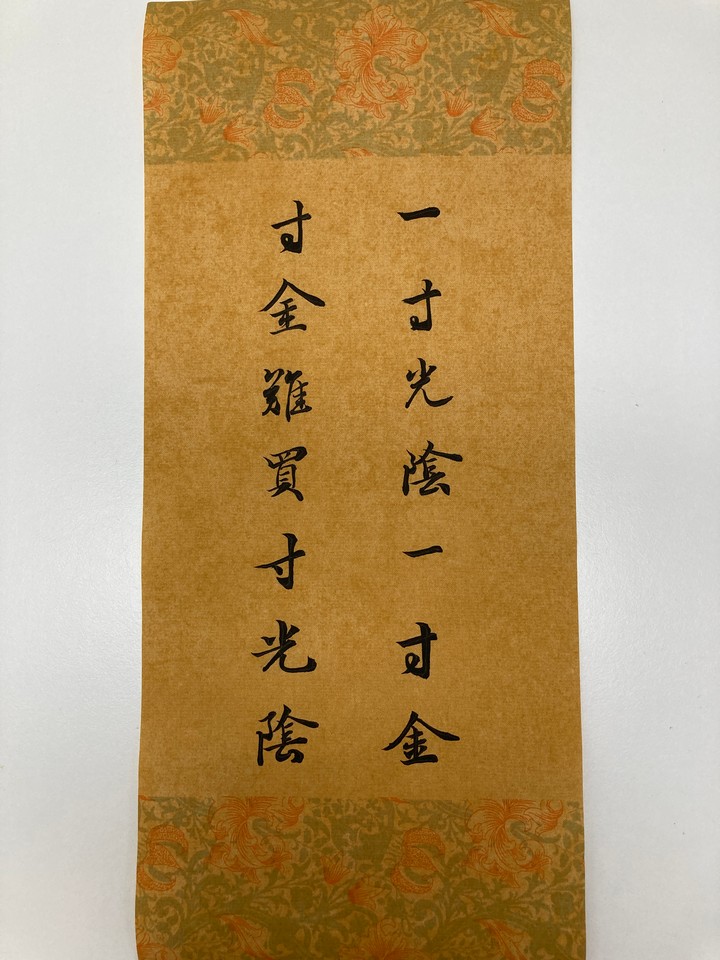 一寸光陰一寸金
寸金難買寸光陰